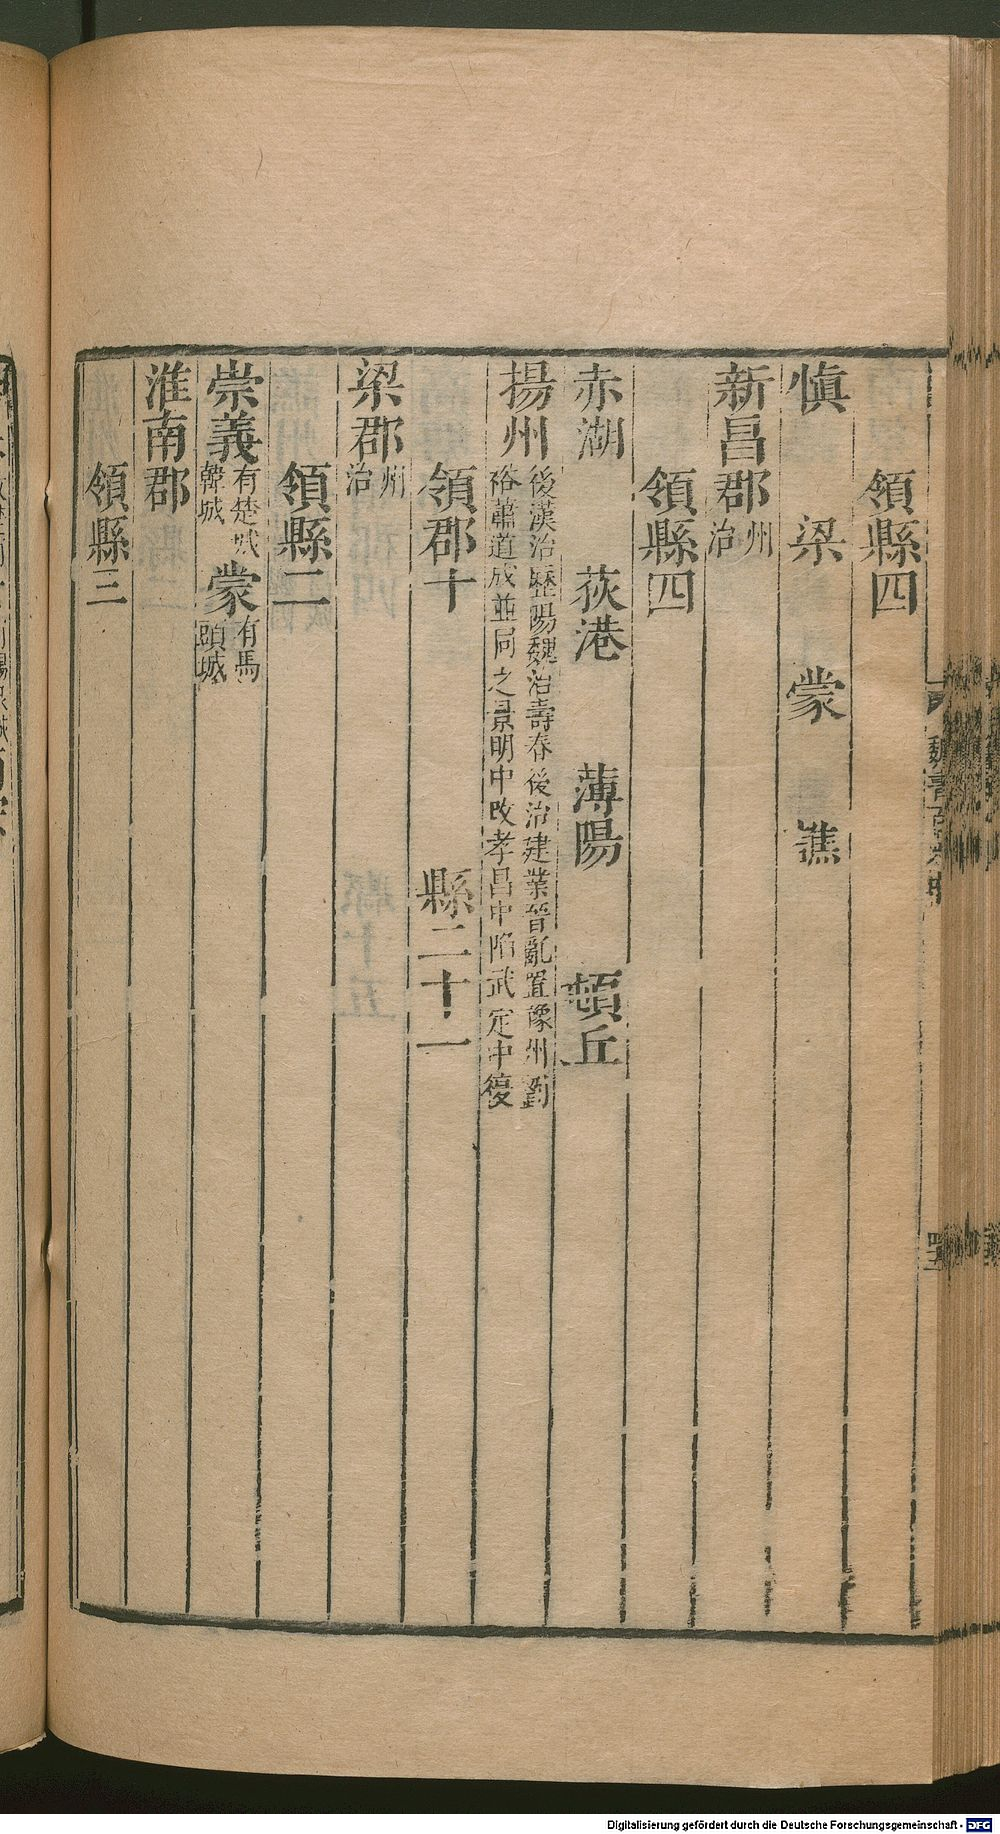 領縣四
慎 梁 蒙 譙
新昌郡州治
領縣四
赤湖 荻港 薄陽 頓丘
揚州後漢治歷陽魏治壽春後治建業晉亂置豫州劉裕蕭道成並同之景明中改孝昌中陷武定中復
領郡十 縣二十一
梁郡州治
領縣二
崇義有楚城韓城 蒙有馬頭城
淮南郡
領縣三
Digitalisierung gefördert durch die Deutsche Forschungsgemeinschaft - DFG